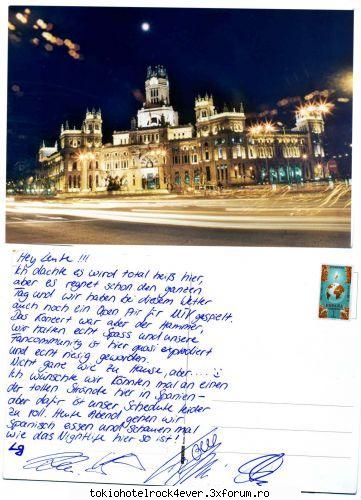 Hey Leute !!!
Ich dachte es wird total heiß hier,
aber es regnet schon den ganzen
Tag und wir haben bei diesem Wetter
auch noch ein Open Air für MTV gespielt.
Das Konzert war aber der Hammer,
wir hatten echt Spass und unsere
Fancommunity ist hier quasi explodiert
und echt riesig geworden.
Nicht ganz wie zu Hause, aber....
Ich wünschte wir könnten mal an einen
der tollen Strände hier in Spanien-
aber dafür ist unser Schedule leider
zu voll. Heute Abend gehen wir
Spanisch essen und schauen mal
wie das Nightlife hier so ist!
Lg
ESPAÑA
www.tokiohotelrock4ever.3xforum.ro